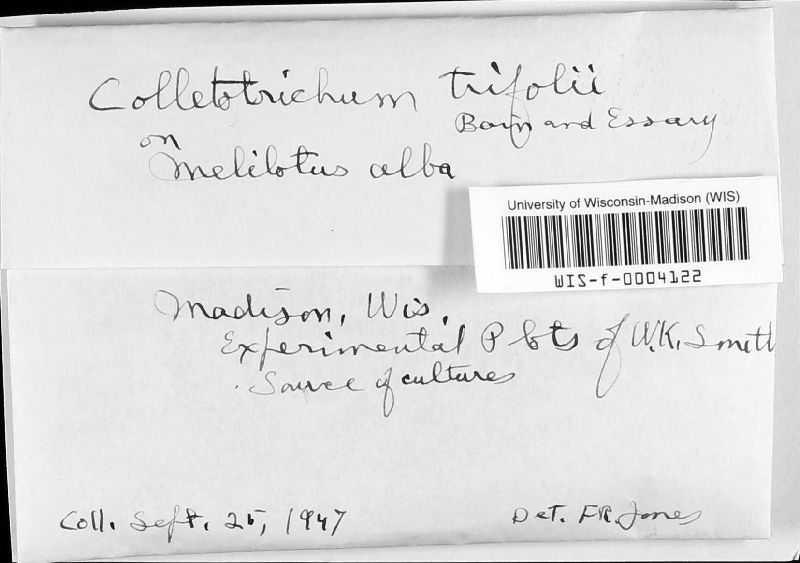 Colletotrichum trifolii
Bain and Essary
on
Melilotus alba
University of Wisconsin-Madison (WIS)
WIS-f-0004122
Madison, Wis.
Experimental Plots of W.K. Smith
Source of cultures
Coll. Sept. 25, 1947
Det. F.R. Jones